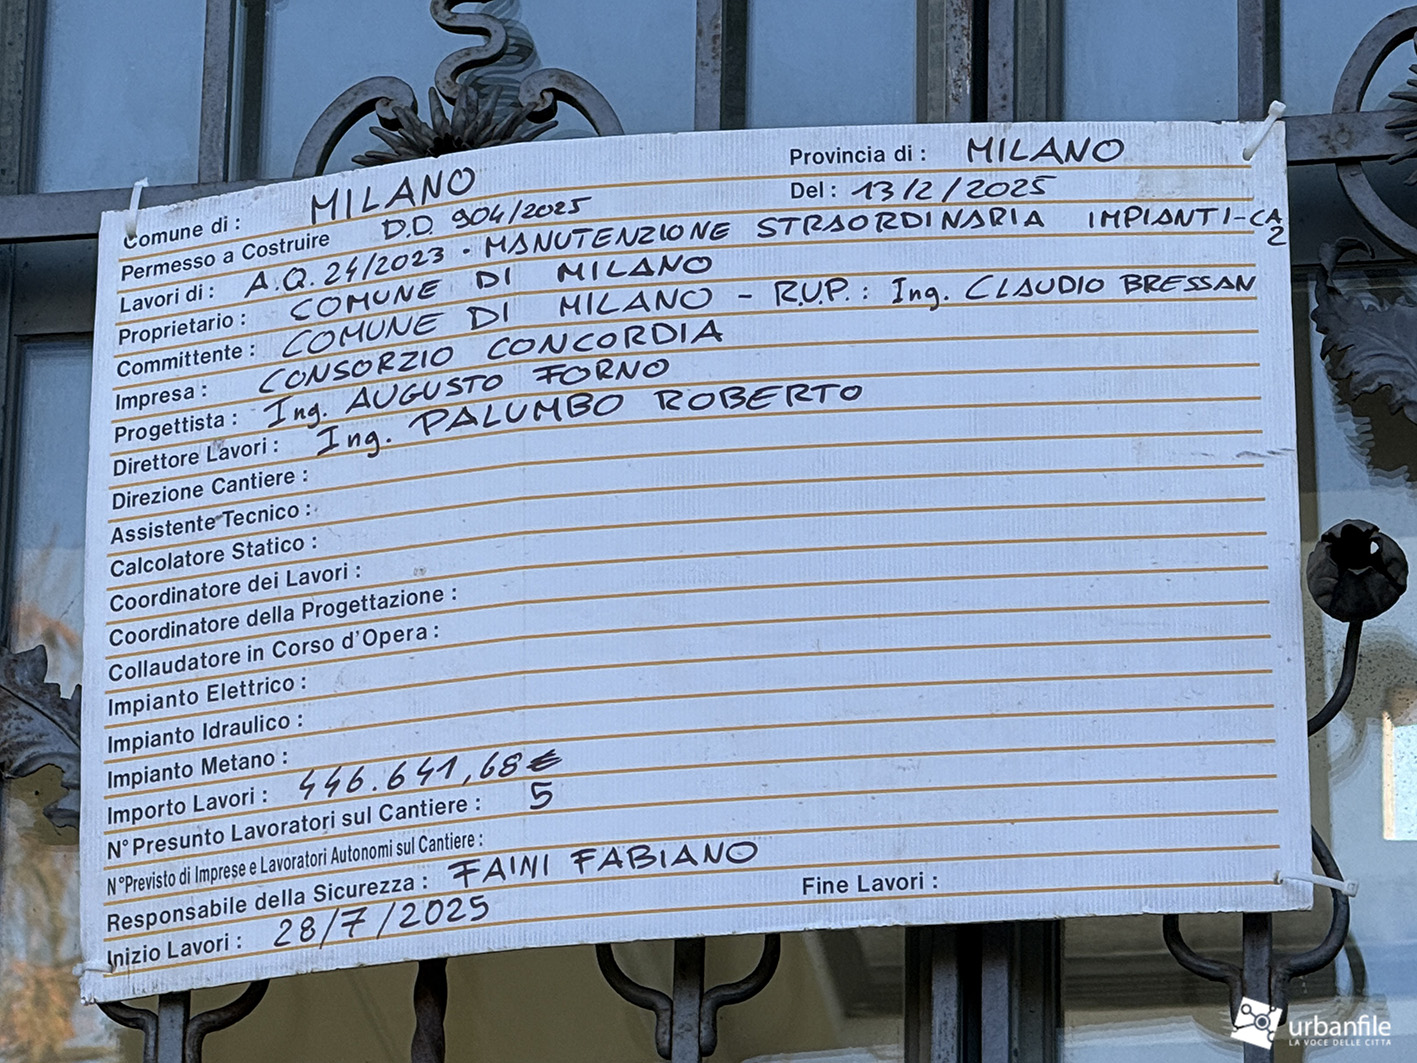 Comune di : MILANO Provincia di : MILANO
Permesso a Costruire D.D. 904/2025 Del : 13/2/2025
Lavori di : A.Q. 24/2023 . MANUTENZIONE STRAORDINARIA IMPIANTI-CA
2
Proprietario : COMUNE DI MILANO
Committente : COMUNE DI MILANO - R.U.P. : Ing. CLAUDIO BRESSAN
Impresa : CONSORZIO CONCORDIA
Progettista : Ing. AUGUSTO FORNO
Direttore Lavori : Ing. PALUMBO ROBERTO
Direzione Cantiere :
Assistente Tecnico :
Calcolatore Statico :
Coordinatore dei Lavori :
Coordinatore della Progettazione :
Collaudatore in Corso d'Opera :
Impianto Elettrico :
Impianto Idraulico :
Impianto Metano :
Importo Lavori : 446.641,68€
N° Presunto Lavoratori sul Cantiere : 5
N° Previsto di Imprese e Lavoratori Autonomi sul Cantiere :
Responsabile della Sicurezza : FAINI FABIANO
Inizio Lavori : 28/7/2025 Fine Lavori :
urbanfile
LA VOCE DELLE CITTÀ